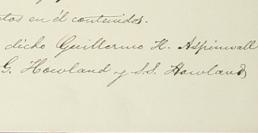 tos en él contenidos.
dicho Guillermo H. Aspinwall
G. Howland y S.S. Howland